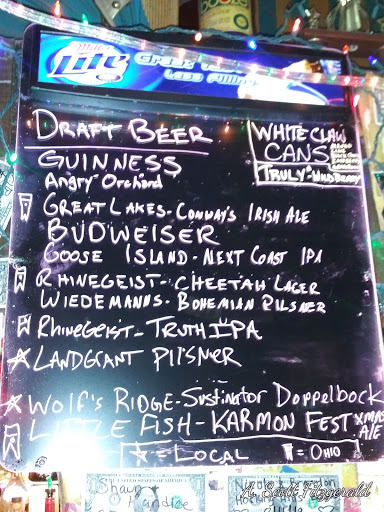 Miller
Lite
Great
Less Filling
DRAFT BEER
GUINNESS
Angry Orchard
GREAT LAKES-CONWAY'S IRISH ALE
BUDWEISER
GOOSE ISLAND-NEXT COAST IPA
RHINEGEIST-CHEETAH LAGER
WIEDEMANNS-BOHEMIAN PILSNER
RHINEGEIST-TRUTH IPA
LANDGRANT PILSNER
WOLF'S RIDGE-SUSTINATOR DOPPELBOCK
LITTLE FISH-KARMON FEST XMAS ALE
= LOCAL = OHIO
WHITE CLAW
CANS
TRULY-WILD BERRY
A. Scott Fitzgerald